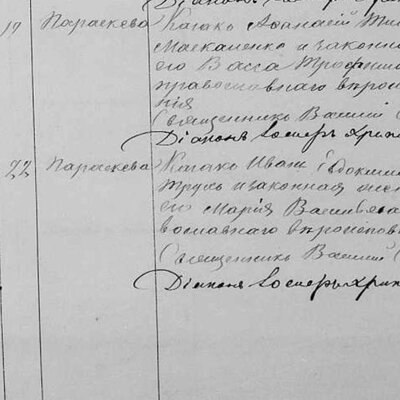 19 Параскева Казакъ Афанасій Ти
Маскаленко и законна
его Васса Трофим
православнаго вѣроис
нія
Священникъ Василій
Діаконъ
22 Параскева Казакъ Иванъ Евдоким
Трусь и законная жен
его Марія Васильева
вославнаго вѣроиспов
Священникъ Василій
Діаконъ